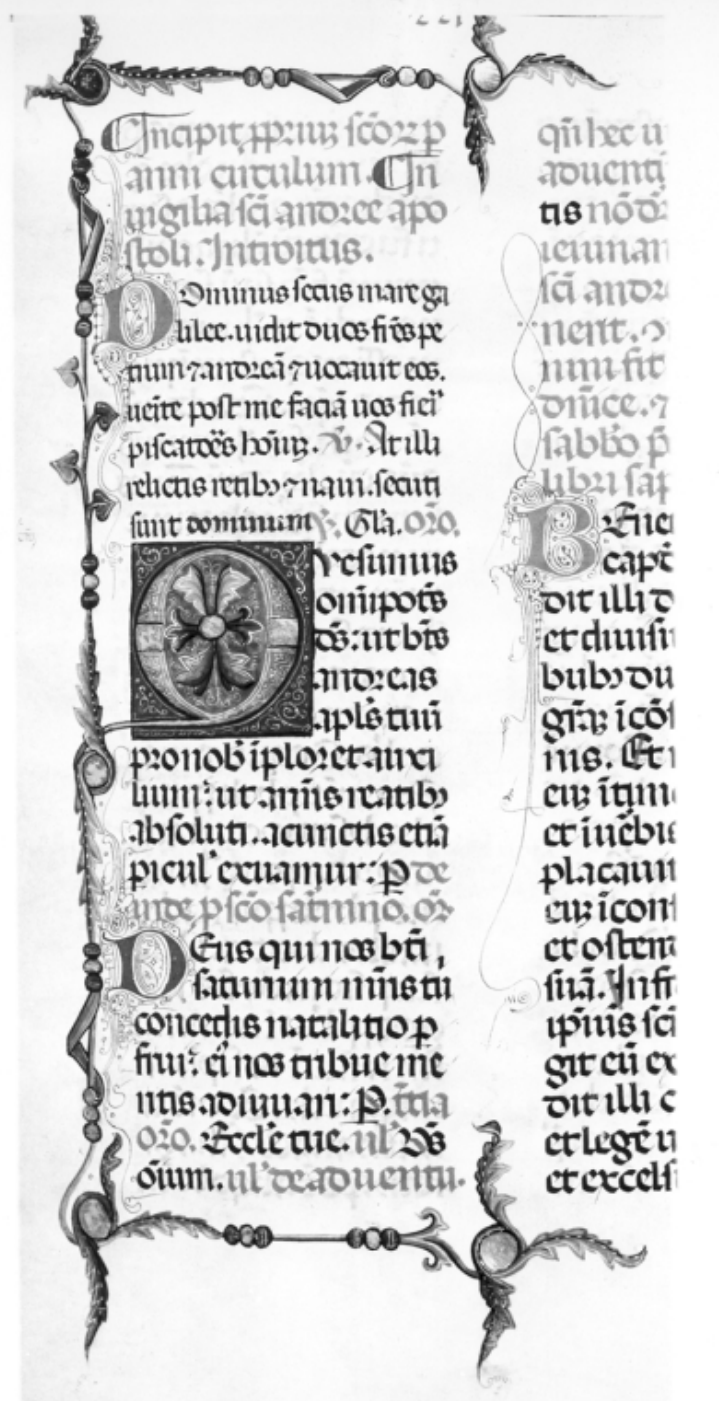 Incipit ꝓpriuꝫ sc̄oꝝ p
anni circulum. In
uigilia sc̄i andree apo
stoli. Introitus.
Dominus secus mare ga
lilee. uidit duos fr̄es pe
trum ⁊ andreā ⁊ uocauit eos.
ueīte post me faciā uos fieri
piscatoēs hoīuꝫ. V̄. At illi
relictis retibꝫ ⁊ naui. secuti
sunt dominum. Gl̄a. Or̄o.
Quesumus
omīpotēs
d̄s: ut bt̄s
andreas
apl̄s tuū
pro nob̄ īploret auxi
lium: ut a nr̄is reatibꝫ
absoluti. a cunctis etiā
picul̕ exuamur: P de
inde p sc̄o sat̄nino. or̄
Deus qui nos bt̄i
saturnini mr̄is tu
concedis natalitio p
frui: eī nos tribue me
ritis adiuuari: P. t̄cia
or̄o. Eccl̄e tue. ul̕ D̄s
oīum. ul̕ de aduentu.
qn̄ hec ui
aduenti
tis nō d
ieiunan
sc̄i andr
nent.
num fit
dn̄ice. ⁊
sabb̄o p̄
libri sap
Bened
capt̄
dit illi
et diuisi
bubꝫ du
gr̄aꝫ ī cō
nis. Et
euꝫ
et iuēbis
placauit
euꝫ ī con
et osten
suā.
ipīus sc̄i
git eū ex
dit illi c
et legē ui
et excels